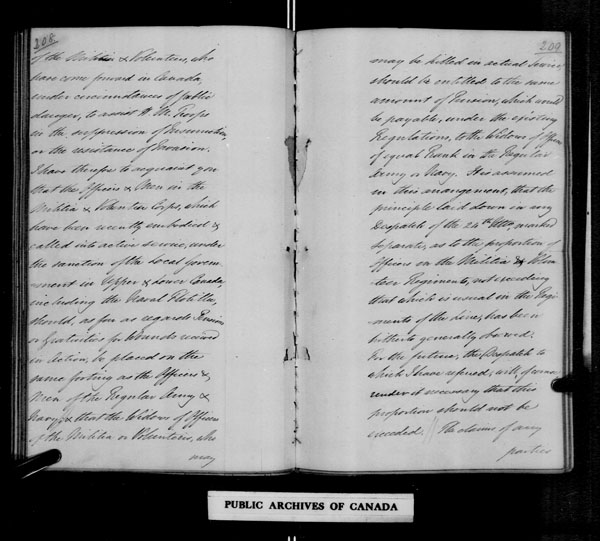 208
of the Militia & Volunteers, who
have come forward in Canada,
under circumstances of public
danger, to assist H. M. Troops
in the suppression of Insurrection,
or the resistance of Invasion.
I have therefore to acquaint you
that the Officers & Men in the
Militia & Volunteer Corps, which
have been recently embodied &
called into active service, under
the sanction of the Local Govern-
-ment in Upper & Lower Canada,
including the Naval Flotilla,
should, as far as regards Pensions
or Gratuities for Wounds received
in Action, be placed on the
same footing as the Officers &
Men of the Regular Army &
Navy, & that the Widows of Officers
of the Militia or Volunteers, who
may
209
may be killed in actual Service
should be entitled to the same
amount of Pension, which would
be payable, under the existing
Regulations, to the Widows of Officers
of equal Rank in the Regular
Army or Navy. It is assumed
in this arrangement, that the
principle laid down in my
Despatch of the 24th marked
Separate, as to the proportion of
Officers in the Militia & Volun-
teer Regiments, not exceeding
that which is usual in the Regi-
ments of the Line, has been
hitherto generally observed.
For the future, the Despatch to
which I have referred, will, of course,
render it necessary that this
proportion should not be
exceeded. The claims of any
parties
PUBLIC ARCHIVES OF CANADA